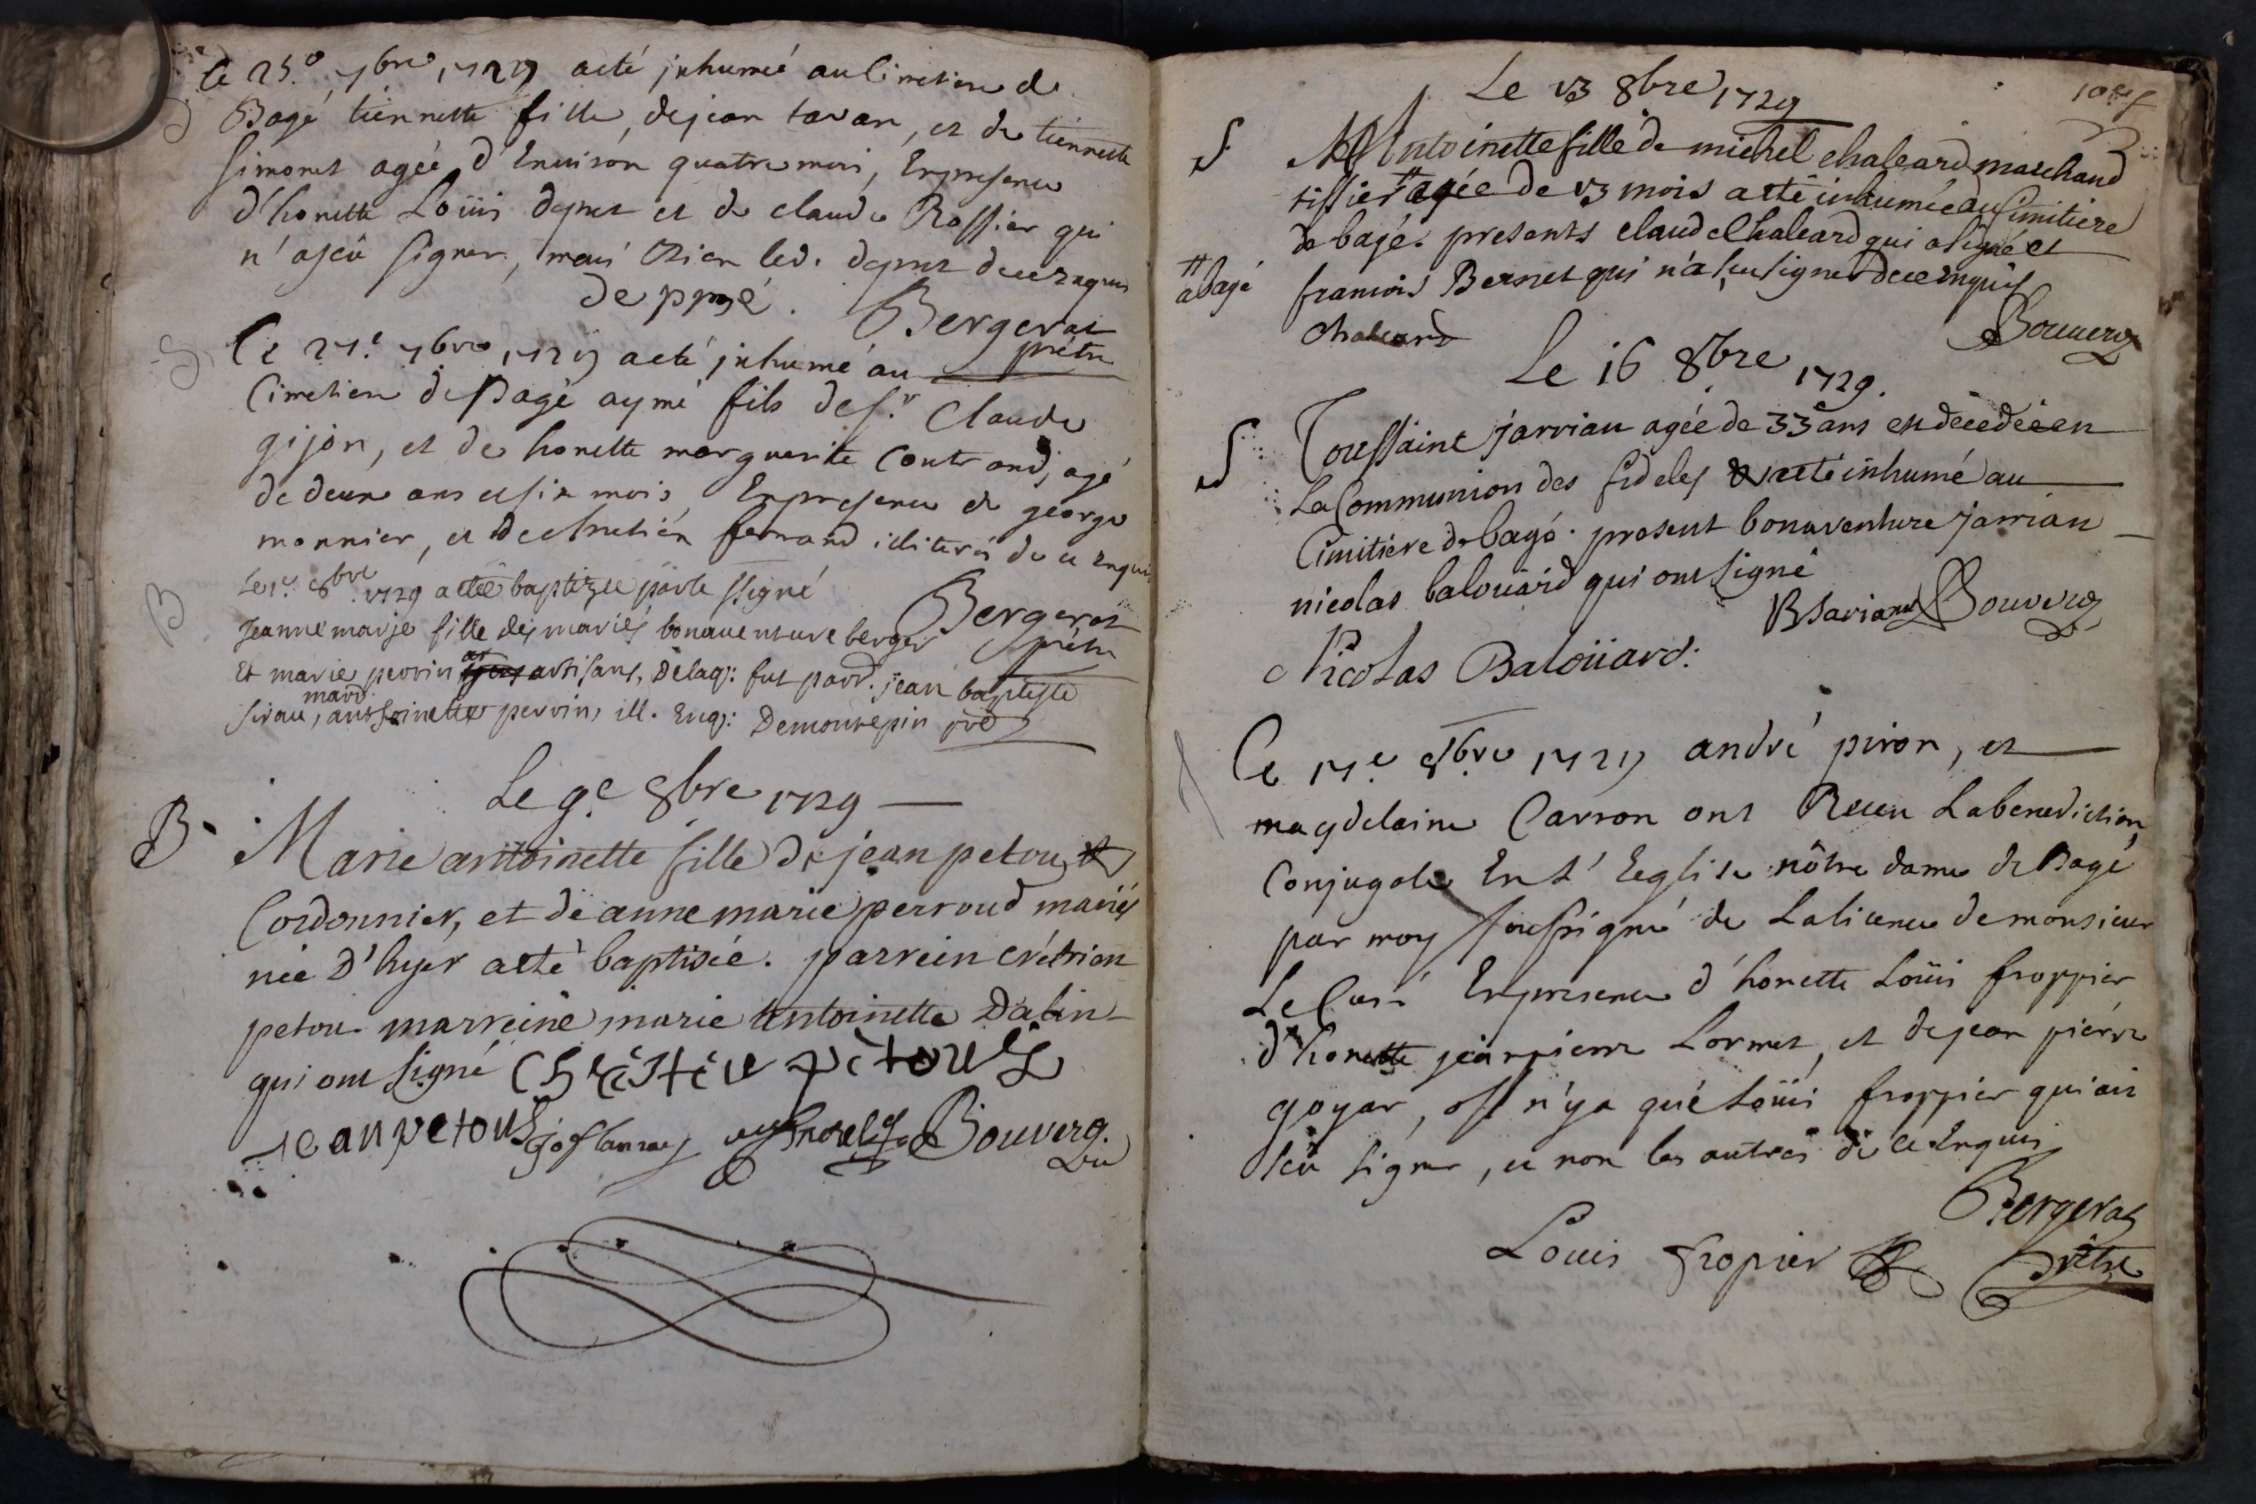 Ce 25.e 7bre 1729 a eté jnhumée au Cimetiere de
Bagé tiennette fille, de jean tavan, et de tiennette
simonet agée d'Environ quatre mois, En presence
d'honette Loüis depret et de claude Rossier qui
n'a sçû signer, mais bien led. depret de ce requis
Bergerat
prêtre
Ce 27.e 7bre 1729 a eté jnhumé au
Cimetiere de Bagé aymé fils de s.r Claude
gijon, et de honette marguerite Contrand, agé
de deux ans et six mois, En presence de george
monnier, et de chretién ferrand illiterés de ce enquis
Bergerat
prêtre
B
Le 1.r 8bre 1729 a etée baptizee par le ssigné
Jeanne marje fille des mariés bonaventure berger
Et marie perrin artisans, Delaq: fut parr. jean baptiste
sirau, marr. anthoinette perrin, ill. Enq: Demourepin
Le 9e 8bre 1729
B.
Marie antoinette fille de jean petou
Cordonnier, et de anne marie perroud mariés
née D'hyer a eté baptisée. parrein crétien
petou. marreine marie antoinette Dalin
qui ont signé Chrétien petous
jean petous Bouverg.
Le 13 8bre 1729
S
Antoinette fille de michel chaleard marchand
tissier # agée de 13 mois a eté inhumée au Cimitiere
de bajé. presents claude Chaleard qui a signé et
# a bajé
francois Bernet qui n'a sceu signer de ce enquis
chaleard
Bouverg
Le 16 8bre 1729.
S
Toussaint jarrian agée de 33 ans est decedée en
La Communion des fideles et a eté inhumé au
Cimitiere de bagé. present bonaventure jarrian
nicolas balouard qui ont signé
B Jarian Bouverg
Nicolas Baloüard:
Ce 17.e 8bre 1729 andré piron, et
magdelaine Carron ont Receu La benediction
Conjugale En L'Eeglise nôtre dame de Bagé
par moy soussigné de La licence de monsieur
Le Curé En presence d'honette Loüis froppier
d'honette jean pierre Lormet, et de jean piérre
goyar, et n'ya que Loüis froppier qui ait
sçû signer, et non les autres de ce Enquis
Bergerat
Louis fropier prêtre